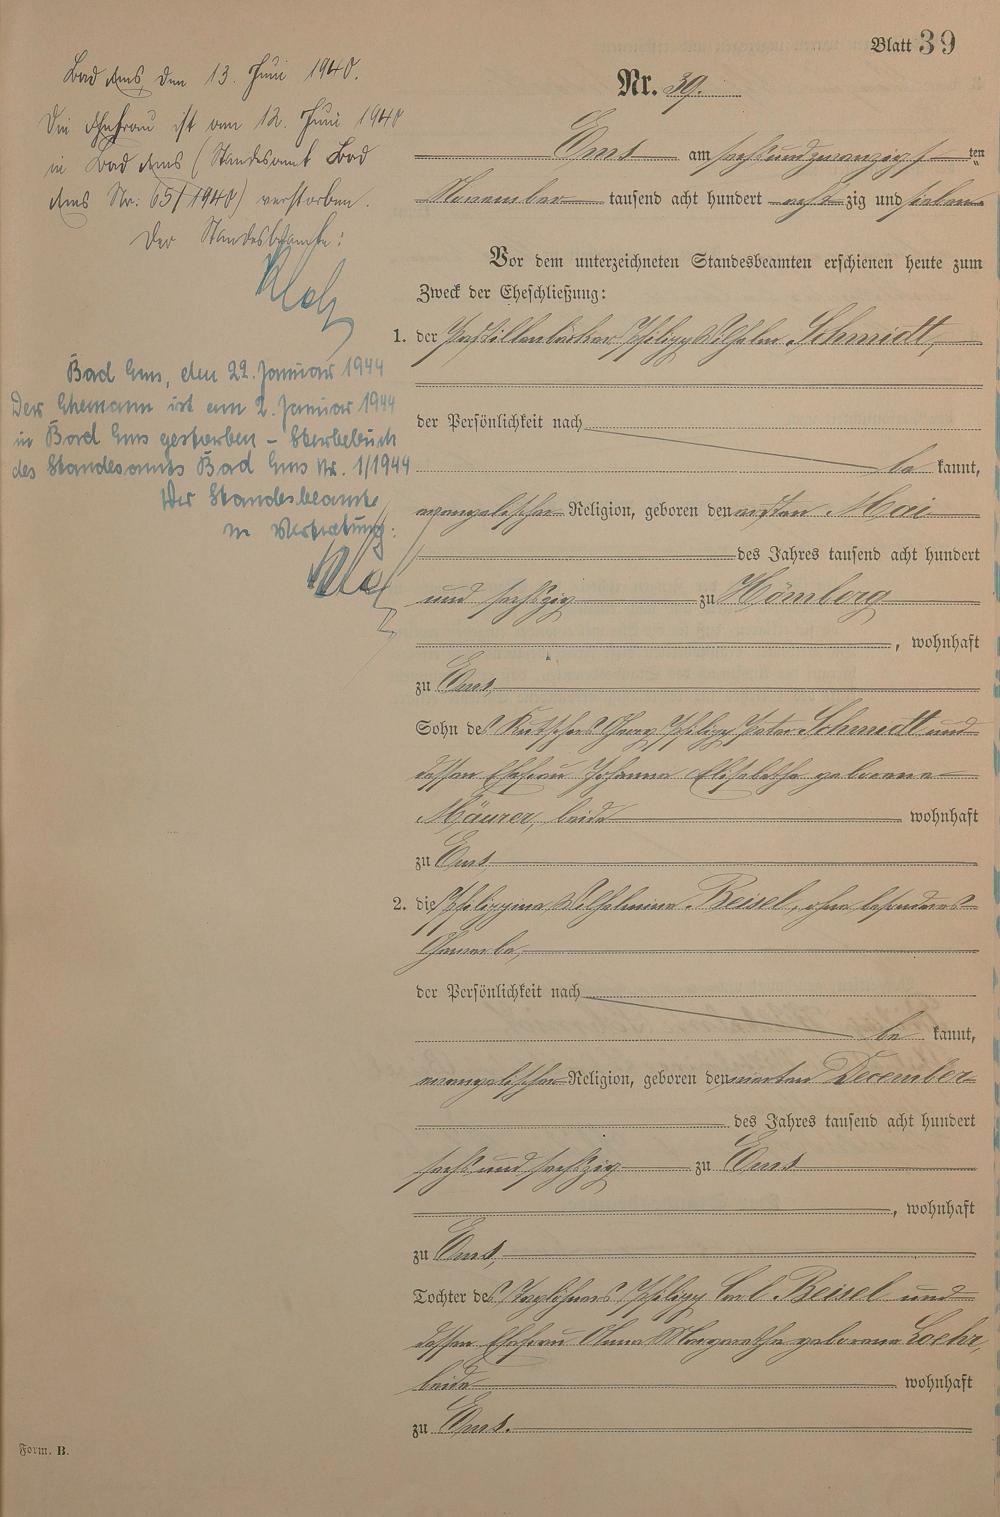 Blatt 39
Nr. 39.
Bad Ems, den 13. Juni 1940.
Die Ehefrau ist am 12. Juni 1940
in Bad Ems (Standesamt Bad
Ems Nr: 65/1940) verstorben.
Der Standesbeamte:
Bad Ems, den 22. Januar 1944
Der Ehemann ist am 2. Januar 1944
in Bad Ems gestorben – Sterbebuch
des Standesamts Bad Ems Nr. 1/1944
Der Standesbeamte
in Vertretung:
Ems am sechsundzwanzigsten
November tausend acht hundert achtzig und sieben
Vor dem unterzeichneten Standesbeamten erschienen heute zum
Zweck der Eheschließung:
1. der Pastillenbäcker Philipp Wilhelm Schmidt,
der Persönlichkeit nach
be kannt,
evangelischer Religion, geboren den ersten Mai
des Jahres tausend acht hundert
und sechszig zu Hömberg
, wohnhaft
zu Ems,
Sohn des Kutschers Georg Philipp Peter Schmidt und
dessen Ehefrau Johanna Elisabetha geborene
Mäurer, beide wohnhaft
zu Ems
2. die Philippina Wilhelmina Beisel, ohne besonderes
Gewerbe,
der Persönlichkeit nach
be kannt,
evangelischer Religion, geboren den vierten December
des Jahres tausend acht hundert
sechs und sechszig zu Ems
, wohnhaft
zu Ems,
Tochter des Taglöhners Philipp Carl Beisel und
dessen Ehefrau Anna Margaretha geborene Loehr,
beide wohnhaft
zu Ems.
Form. B.